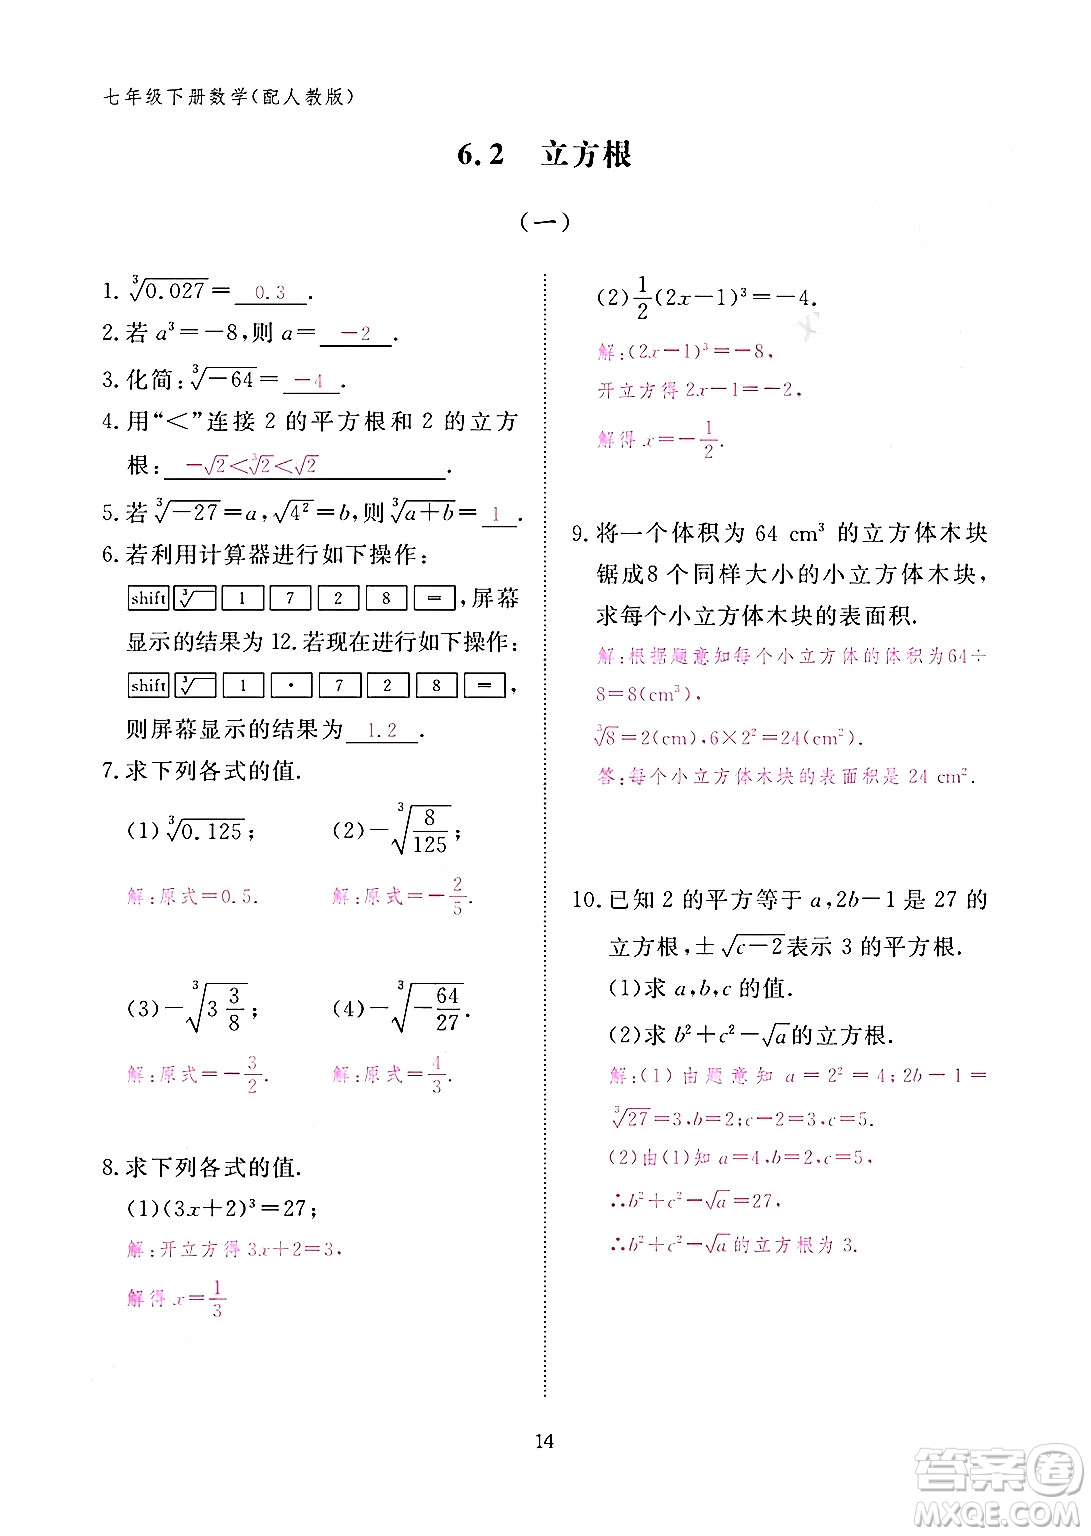 七年级下册数学(配人教版)
6.2 立方根
(一)
1. ∛0.027＝ 0.3 .
2. 若 a³＝－8,则 a＝ －2 .
3. 化简:∛－64＝ －4 .
4. 用“＜”连接 2 的平方根和 2 的立方
根: －√2＜∛2＜√2 .
5. 若∛－27＝a,√4²＝b,则∛a＋b＝ 1 .
6. 若利用计算器进行如下操作:
shift ∛ 1 7 2 8 ＝ ,屏幕
显示的结果为 12.若现在进行如下操作:
shift ∛ 1 · 7 2 8 ＝ ,
则屏幕显示的结果为 1.2 .
7. 求下列各式的值.
(1)∛0.125; (2)－∛(8/125);
解:原式＝0.5. 解:原式＝－2/5.
(3)－∛(3 3/8); (4)－∛(－64/27).
解:原式＝－3/2. 解:原式＝4/3.
8. 求下列各式的值.
(1)(3x＋2)³＝27;
解:开立方得 3x＋2＝3,
解得 x＝1/3
(2)1/2(2x－1)³＝－4.
解:(2x－1)³＝－8,
开立方得 2x－1＝－2,
解得 x＝－1/2.
9. 将一个体积为 64 cm³ 的立方体木块
锯成8 个同样大小的小立方体木块,
求每个小立方体木块的表面积.
解:根据题意知每个小立方体的体积为64÷
8＝8(cm³),
∛8＝2(cm),6×2²＝24(cm²).
答:每个小立方体木块的表面积是 24 cm².
10. 已知 2 的平方等于 a,2b－1 是 27 的
立方根,±√c－2表示 3 的平方根.
(1)求 a,b,c 的值.
(2)求 b²＋c²－√a的立方根.
解:(1)由题意知 a＝2²＝4;2b－1＝
∛27＝3,b＝2;c－2＝3,c＝5.
(2)由(1)知 a＝4,b＝2,c＝5,
∴b²＋c²－√a＝27,
∴b²＋c²－√a的立方根为 3.
14
答案圈
MXQE.COM